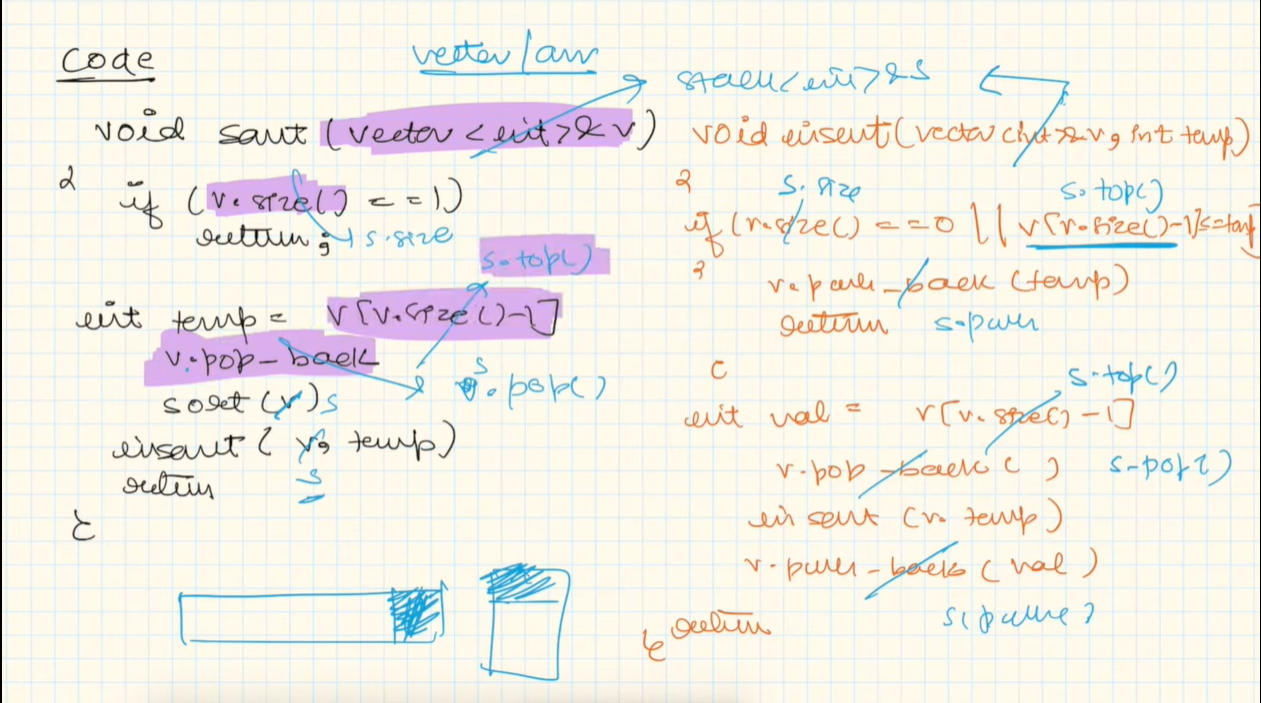 Code
vector/arr
void sort (vector<int>& v)
{
if (v.size() == 1)
return;
s.size
s.top()
int temp = v[v.size()-1]
v.pop_back
s.pop()
sort (v) s
insert ( v, temp)
return s
}
stack<int>& s
void insert (vector<int>& v, int temp)
{
s.size
s.top()
if (v.size() == 0 || v[v.size()-1] <= temp)
{
v.push_back (temp)
return s.push
}
s.top()
int val = v[v.size()-1]
v.pop_back ( ) s.pop()
insert (v, temp)
v.push_back (val)
s(push)
return
}